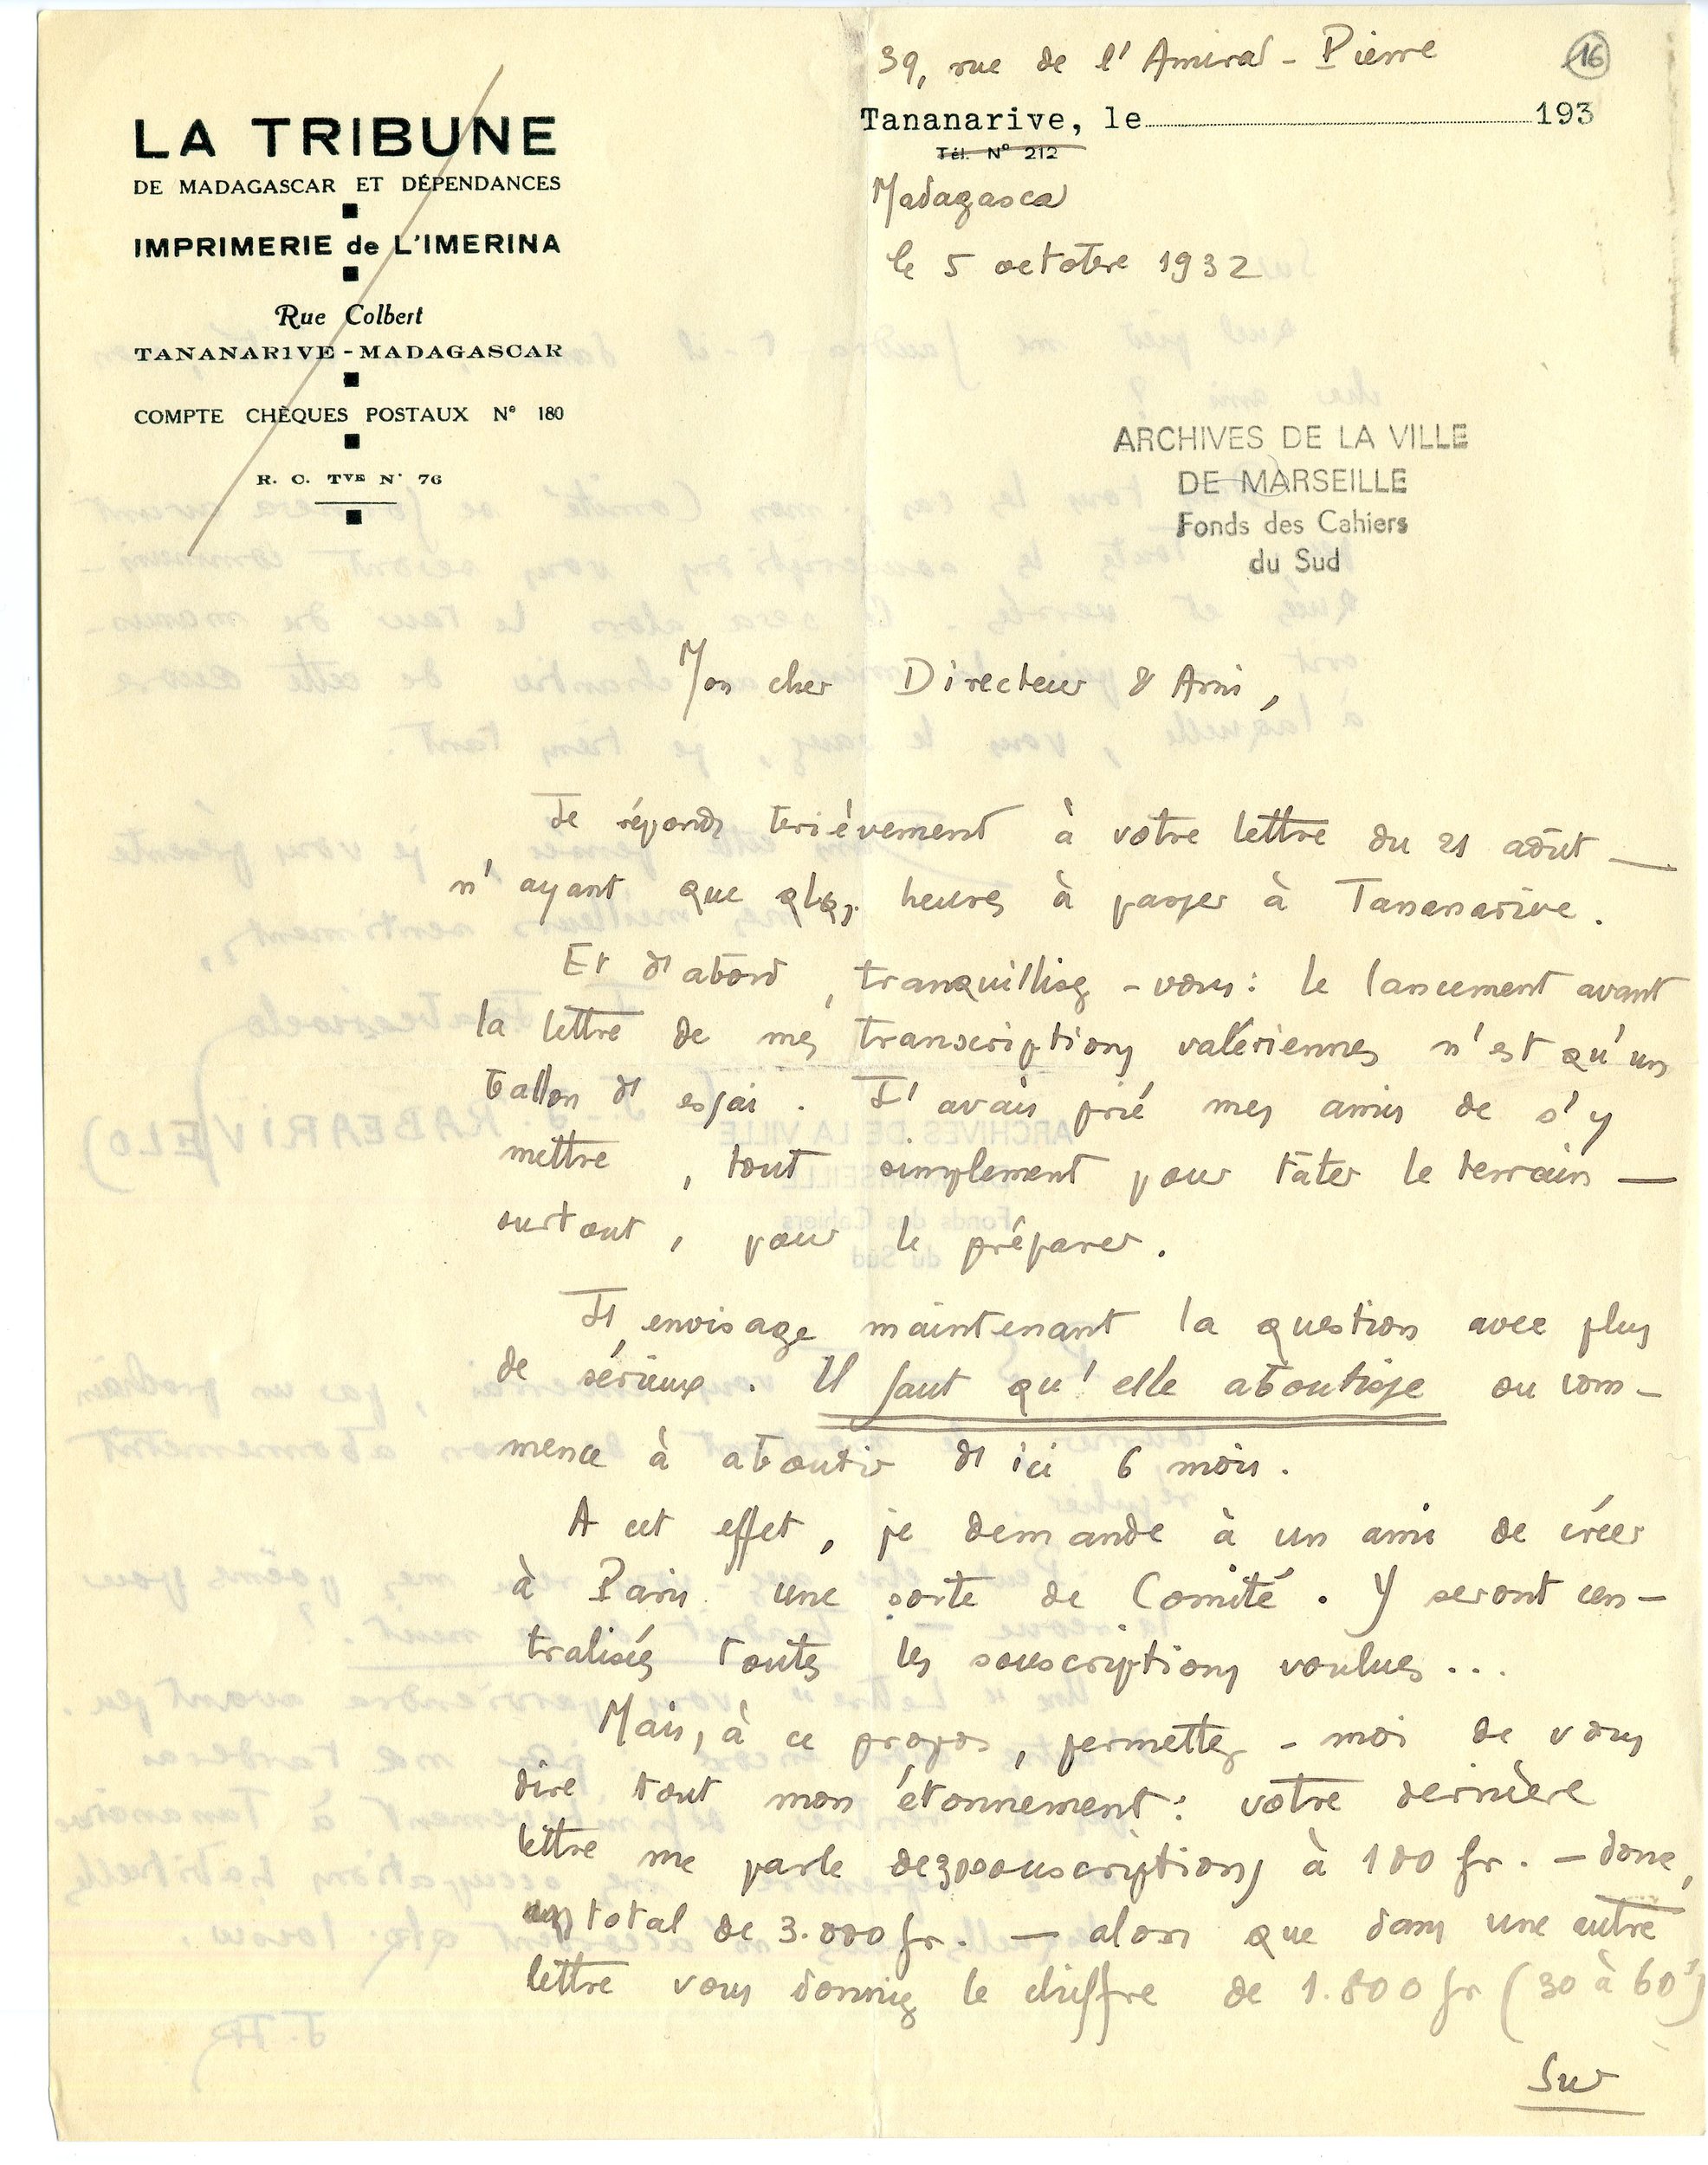 39, rue de l'Amiral-Pierre
16
LA TRIBUNE
DE MADAGASCAR ET DÉPENDANCES
IMPRIMERIE de L'IMERINA
Rue Colbert
TANANARIVE - MADAGASCAR
COMPTE CHÈQUES POSTAUX Nº 180
R. C. TVE Nº 76
Tananarive, le 193
Tél. Nº 212
Madagascar
le 5 octobre 1932
ARCHIVES DE LA VILLE
DE MARSEILLE
Fonds des Cahiers
du Sud
Mon cher Directeur & Ami,
Je réponds brièvement à votre lettre du 21 août —
n'ayant que qlqs. heures à passer à Tananarive.
Et d'abord, tranquillisez-vous : le lancement avant
la lettre de mes transcriptions valériennes n'est qu'un
ballon d'essai. J'avais prié mes amis de s'y
mettre, tout simplement pour tâter le terrain —
surtout, pour le préparer.
J'envisage maintenant la question avec plus
de sérieux. Il faut qu'elle aboutisse ou com-
mence à aboutir d'ici 6 mois.
A cet effet, je demande à un ami de créer
à Paris une sorte de Comité. Y seront cen-
tralisés toutes les souscriptions voulues...
Mais, à ce propos, permettez-moi de vous
dire tout mon étonnement : votre dernière
lettre me parle de 30 souscriptions à 100 fr. — donc,
un total de 3.000 fr. — alors que dans une autre
lettre vous donniez le chiffre de 1.800 fr (30 à 60f)
Sur